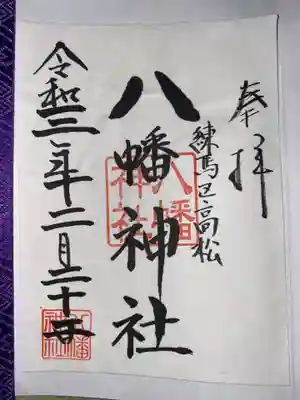 奉拝
練馬区高松
八幡神社
八幡
神社
令和三年二月二十日